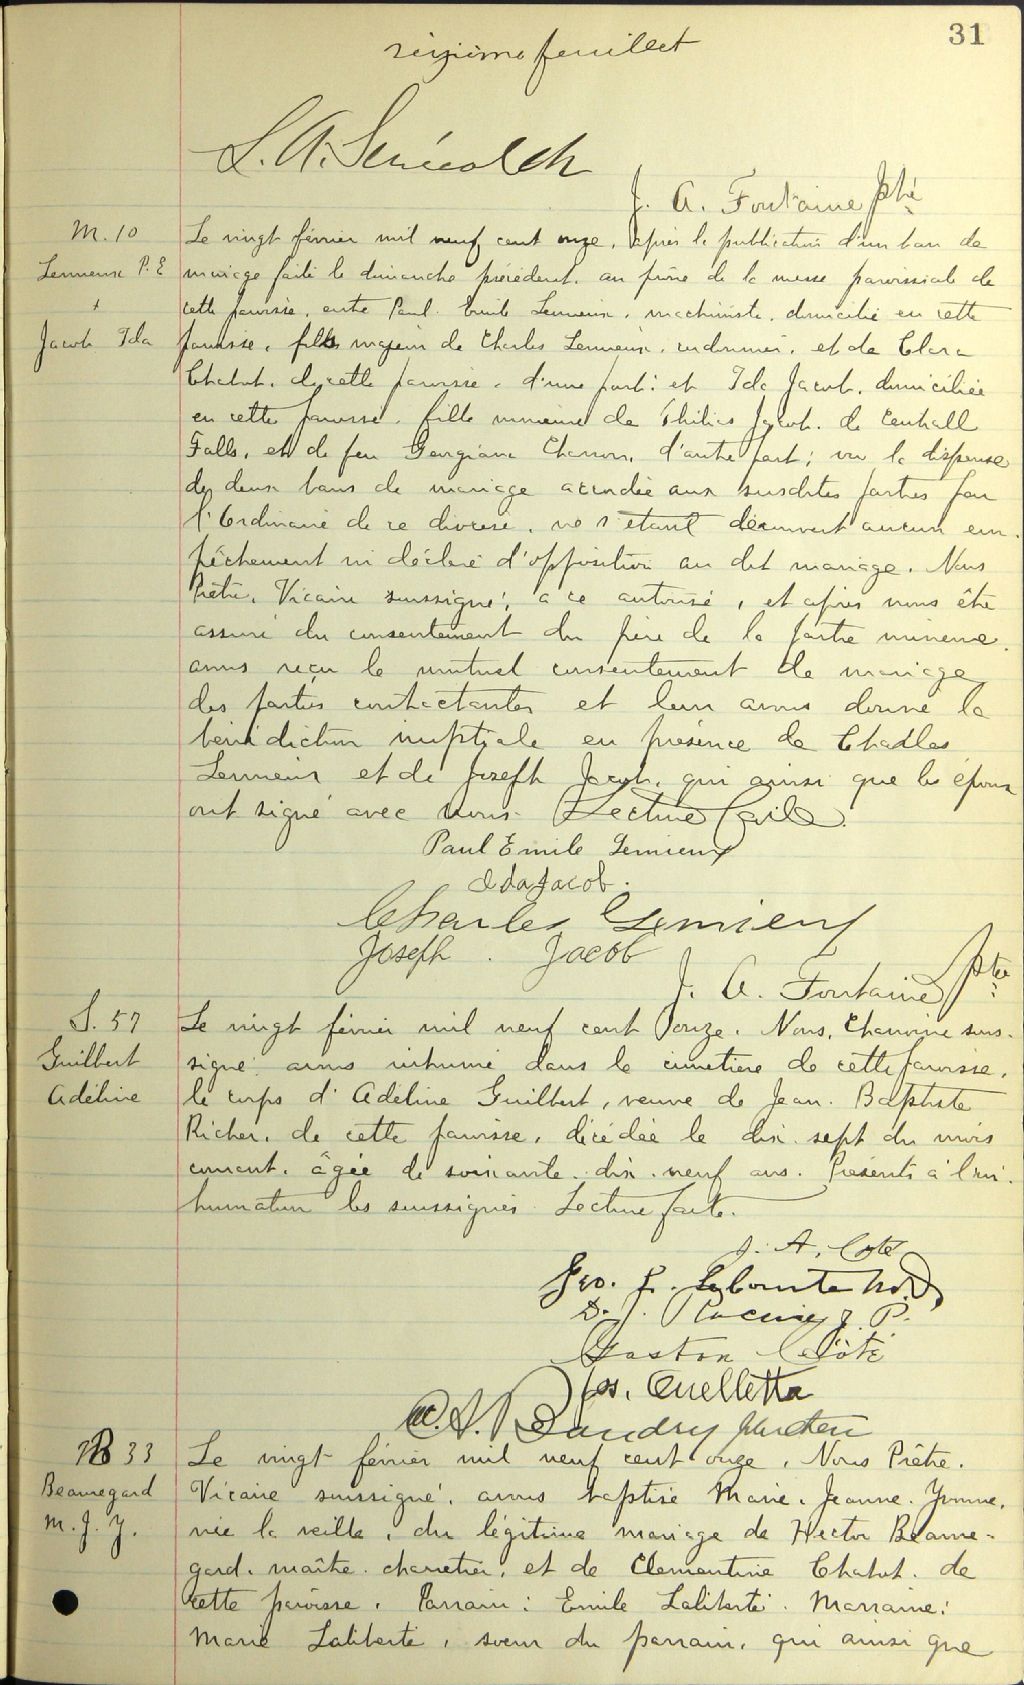 31
feuillet
J. A. Fontaine Ptre
M. 10
Lemieux P. E
+
Jacob Ida
Le vingt février mil neuf cent onze, après la publication d'un ban de
mariage faite le dimanche précédent, au prône de la messe paroissiale de
cette paroisse, entre Paul Emile Lemieux, machiniste, domicilié en cette
paroisse, fils majeur de Charles Lemieux, cordonnier, et de Clara
Chabot, de cette paroisse, d'une part: et Ida Jacob, domiciliée
en cette paroisse, fille mineure de Philias Jacob, de Centrall
Falls, et de feu Georgiana Charron, d'autre part; vu la dispense
de deux bans de mariage accordée aux susdites parties par
l'Ordinaire de ce diocèse, ne s'étant découvert aucun em-
pêchement ni déclaré d'opposition au dit mariage. Nous
Prêtre, Vicaire soussigné, à ce autorisé, et après nous être
assuré du consentement du père de la partie mineure,
avons reçu le mutuel consentement de mariage
des parties contractantes et leur avons donné la
bénédiction nuptiale en présence de Charles
Lemieux et de Joseph Jacob, qui ainsi que les époux
ont signé avec nous. Lecture faite.
Paul Emile Lemieux
Ida Jacob.
Charles Lemieux
Joseph. Jacob
J. A. Fontaine Ptre
S. 57
Guilbert
Adéline
Le vingt février mil neuf cent onze. Nous, Chanoine sous-
signé, avons inhumé dans le cimetière de cette paroisse,
le corps d'Adéline Guilbert, veuve de Jean-Baptiste
Richer, de cette paroisse, décédée le dix-sept du mois
courant, âgée de soixante-dix-neuf ans. Présents à l'in-
humation les soussignés. Lecture faite.
J. A. Coté
Geo. J. Lecomte M.D.
J. P.
Gaston Côté
Jos. Ouellette
Beaudry
B 33
Beauregard
M. J. Y.
Le vingt février mil neuf cent onze, Nous Prêtre,
Vicaire soussigné, avons baptisé Marie, Jeanne, Yvonne,
née la veille, du légitime mariage de Hector Beaure-
gard, maître charretier, et de Clementine Chabot, de
cette paroisse. Parrain: Emile Laliberté. Marraine:
Marie Laliberté, soeur du parrain, qui ainsi que